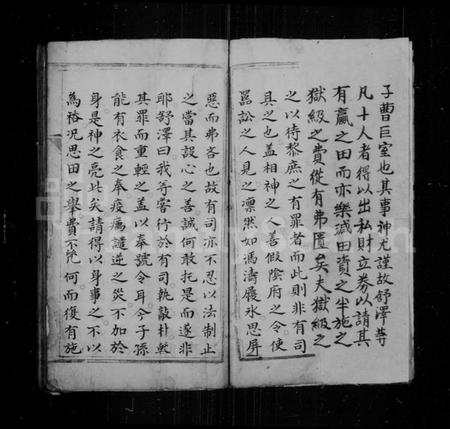 子曹巨室也其事神尤謹故舒澤等
凡十人者得以出私財立券以請其
有贏之田而亦樂減田資之半施之
獄級之費從有弗匱矣夫獄級之
之以待黎庶之有罪者而此則非有司
具之也盖相神之人善假陰府之令使
嚚訟之人見之凛然如馮濤履氷思屏
惡而弗吝也故有司亦不忍以法制止
之當其設心之善誠何敢托是而遂非
耶舒澤曰我等嘗行於有司執敲朴軽
其罪而重輕之盖以奉號令耳今子孫
能有衣食之奉疫癘譴逆之災不加於
身是神之亮此矣請得以身事之不以
為裕况思田之舉費不 何而復有施